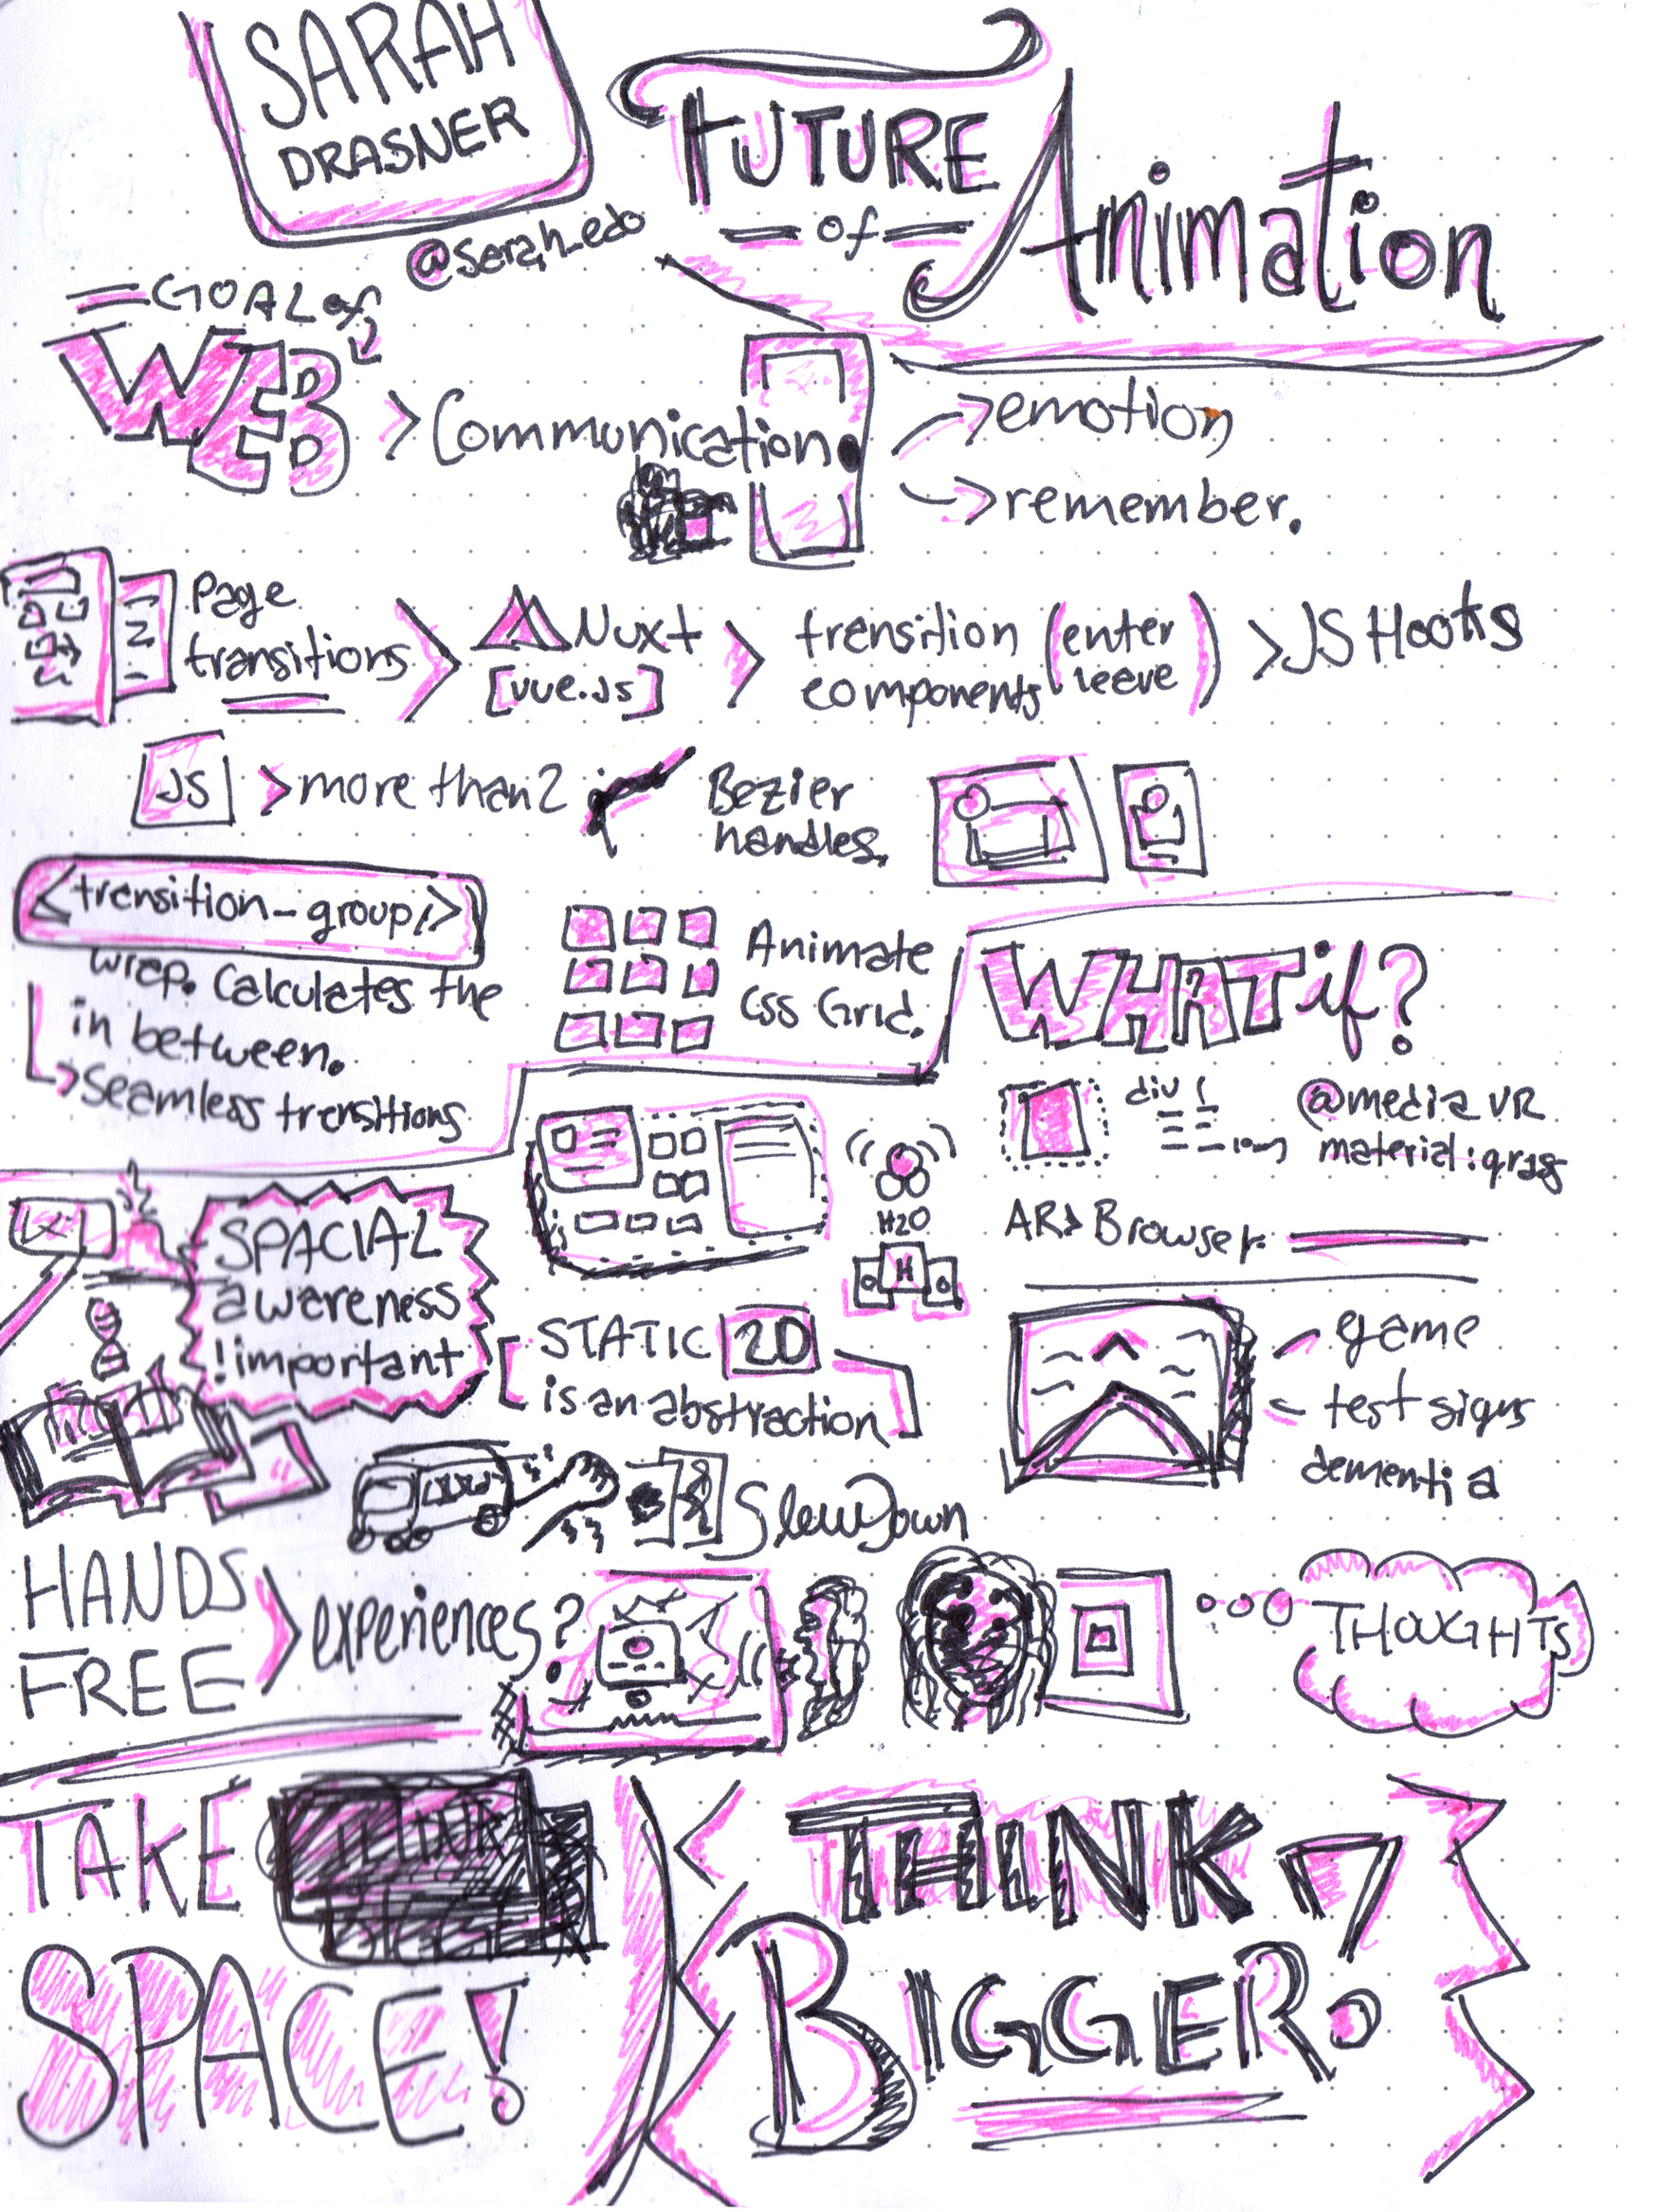 SARAH
DRASNER
@sarah_edo
FUTURE
of
Animation
GOAL of
WEB
> Communication.
emotion
remember.
Page
transitions
Nuxt
[vue.js]
transition
components
(enter
leave)
> JS Hooks
JS
> more than 2
Bezier
handles.
<transition-group/>
wrap. Calculates the
in between.
Seamless transitions
Animate
CSS Grid.
WHAT if?
div {
@media VR
material: gras
AR > Browser.
SPACIAL
awareness
!important
H2O
H
STATIC 2D
is an abstraction
game
test signs
dementia
Slow Down
HANDS
FREE
experiences?
THOUGHTS
TAKE
SPACE!
THINK
BIGGER.